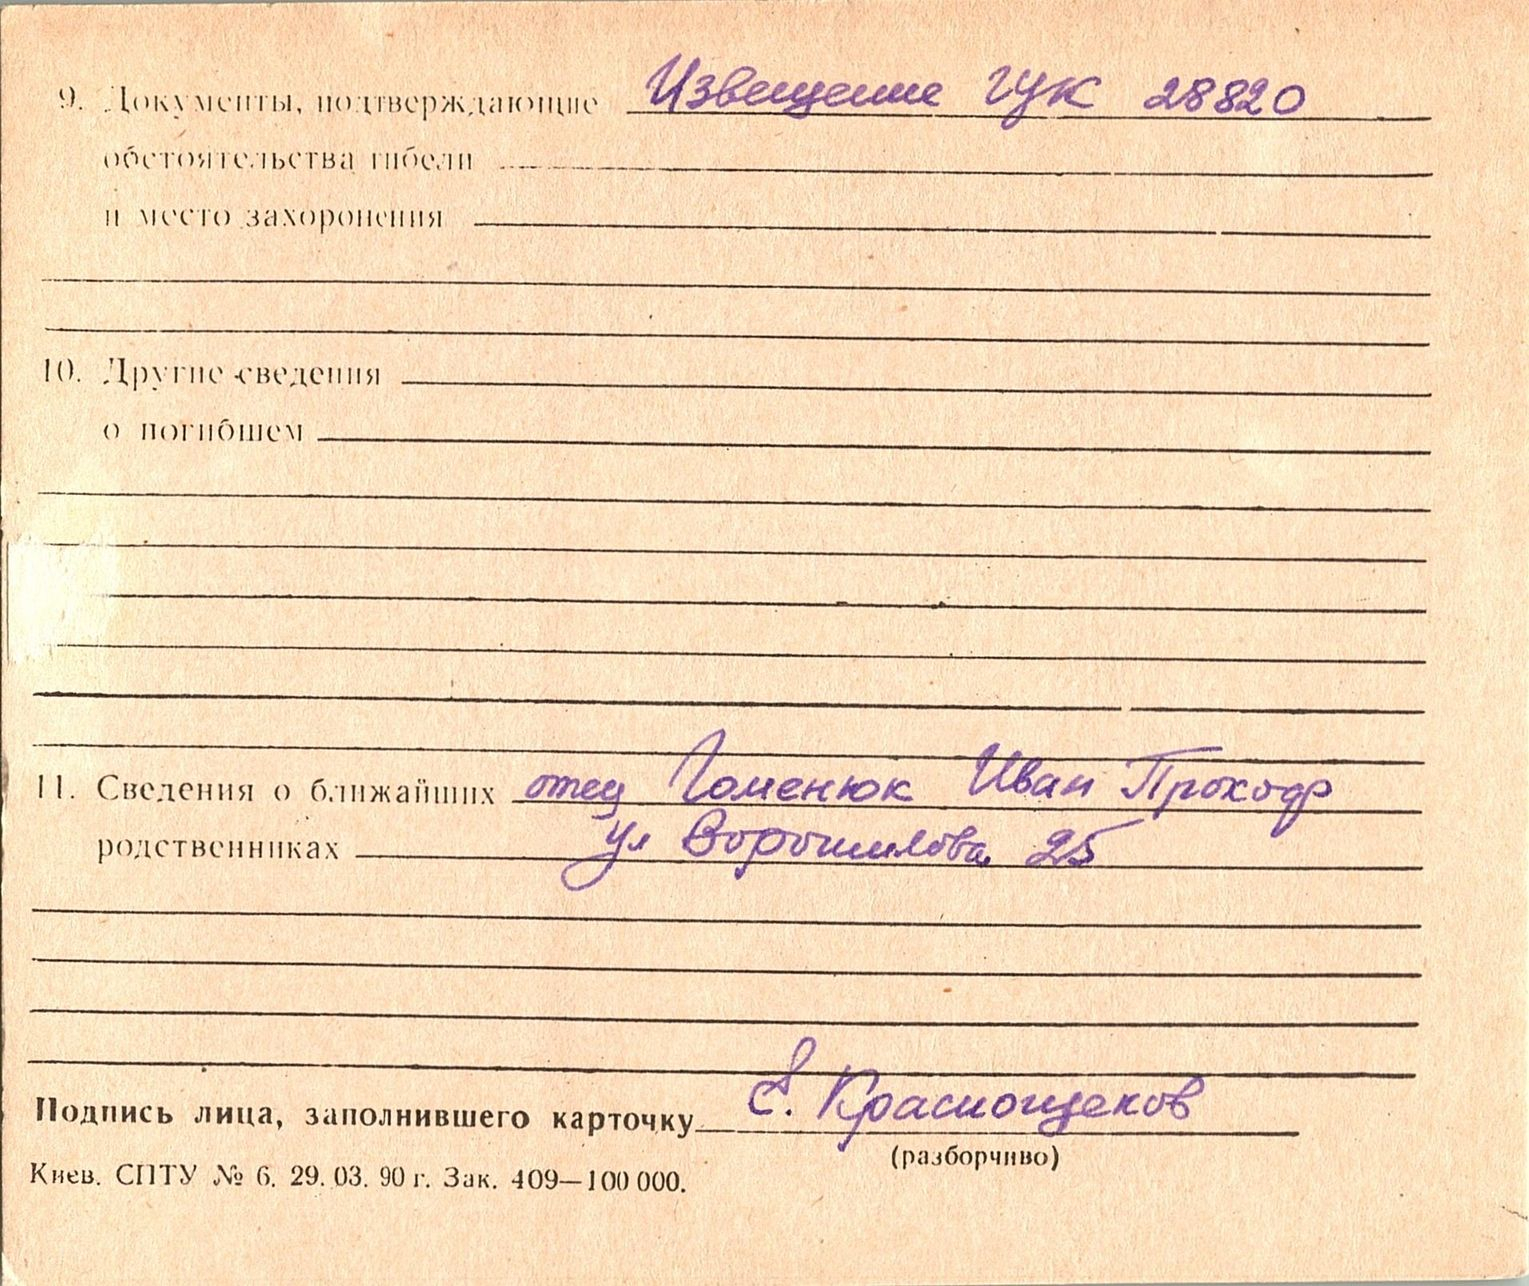 9. Документы, подтверждающие Извещение ГУК 28820
обстоятельства гибели
и место захоронения
10. Другие сведения
о погибшем
11. Сведения о ближайших отец Гоменюк Иван Прокоф
родственниках ул Ворошилова 25
Подпись лица, заполнившего карточку Е. Краснощеков
(разборчиво)
Киев. СПТУ № 6. 29. 03. 90 г. Зак. 409—100 000.